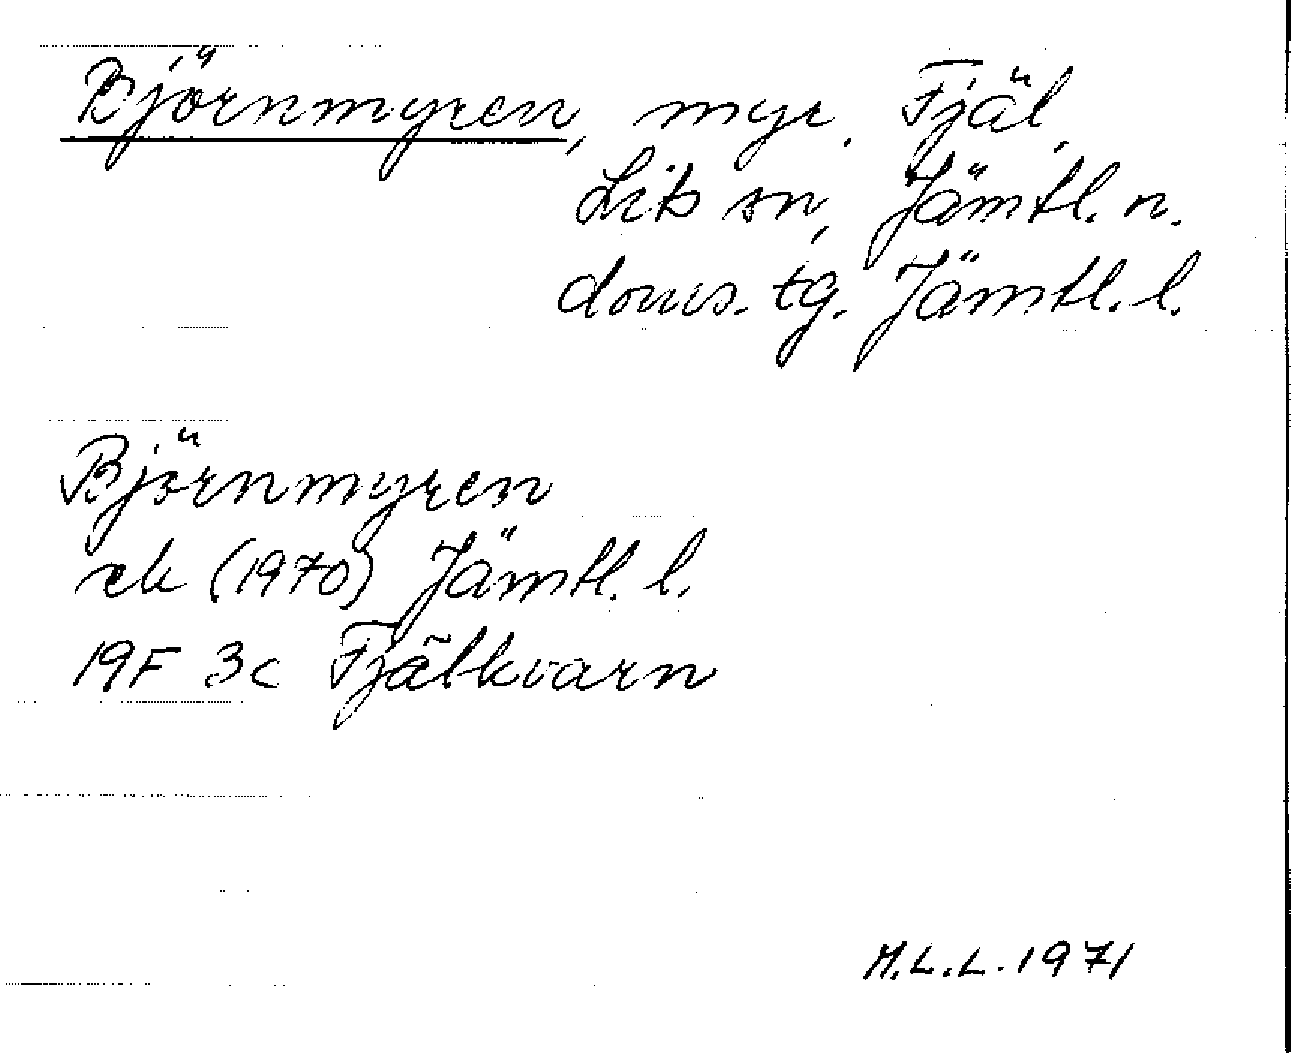 Björnmyren, myr. Fjäl,
Lits sn, Jämtl. n.
doms. tg. Jämtl. l.
Björnmyren
ek (1970) Jämtl. l.
19F 3c Fjälkvarn
M.L.L. 1971